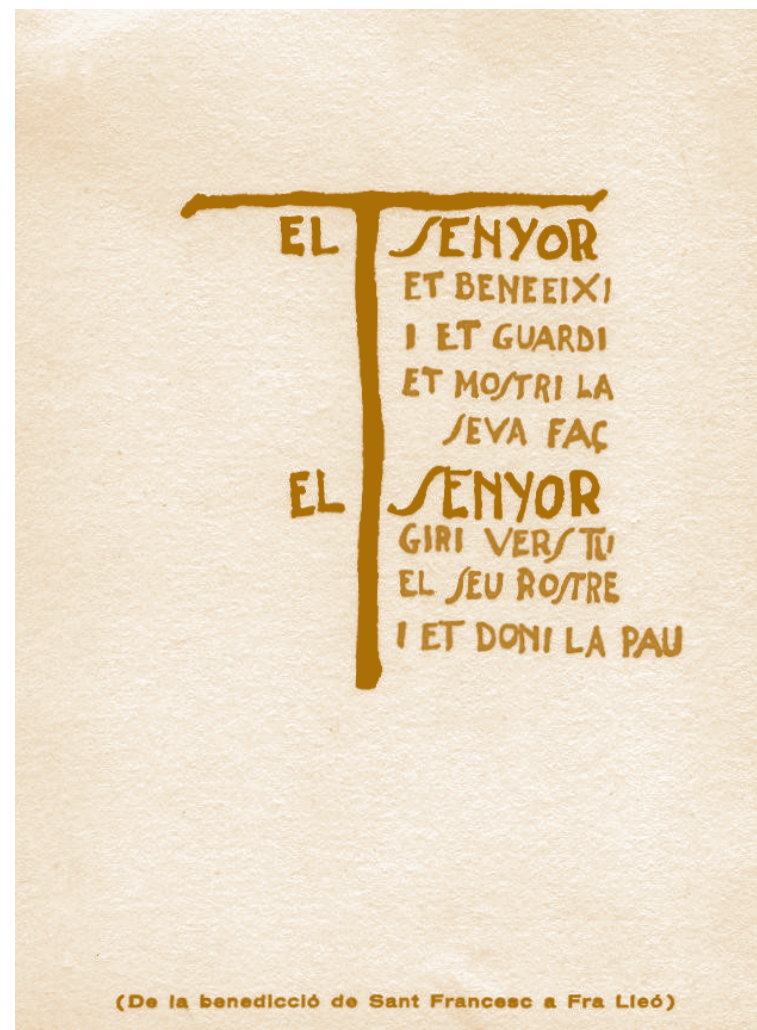 EL SENYOR
ET BENEEIXI
I ET GUARDI
ET MOSTRI LA
SEVA FAÇ
EL SENYOR
GIRI VERS TU
EL SEU ROSTRE
I ET DONI LA PAU
(De la benedicció de Sant Francesc a Fra Lleó)